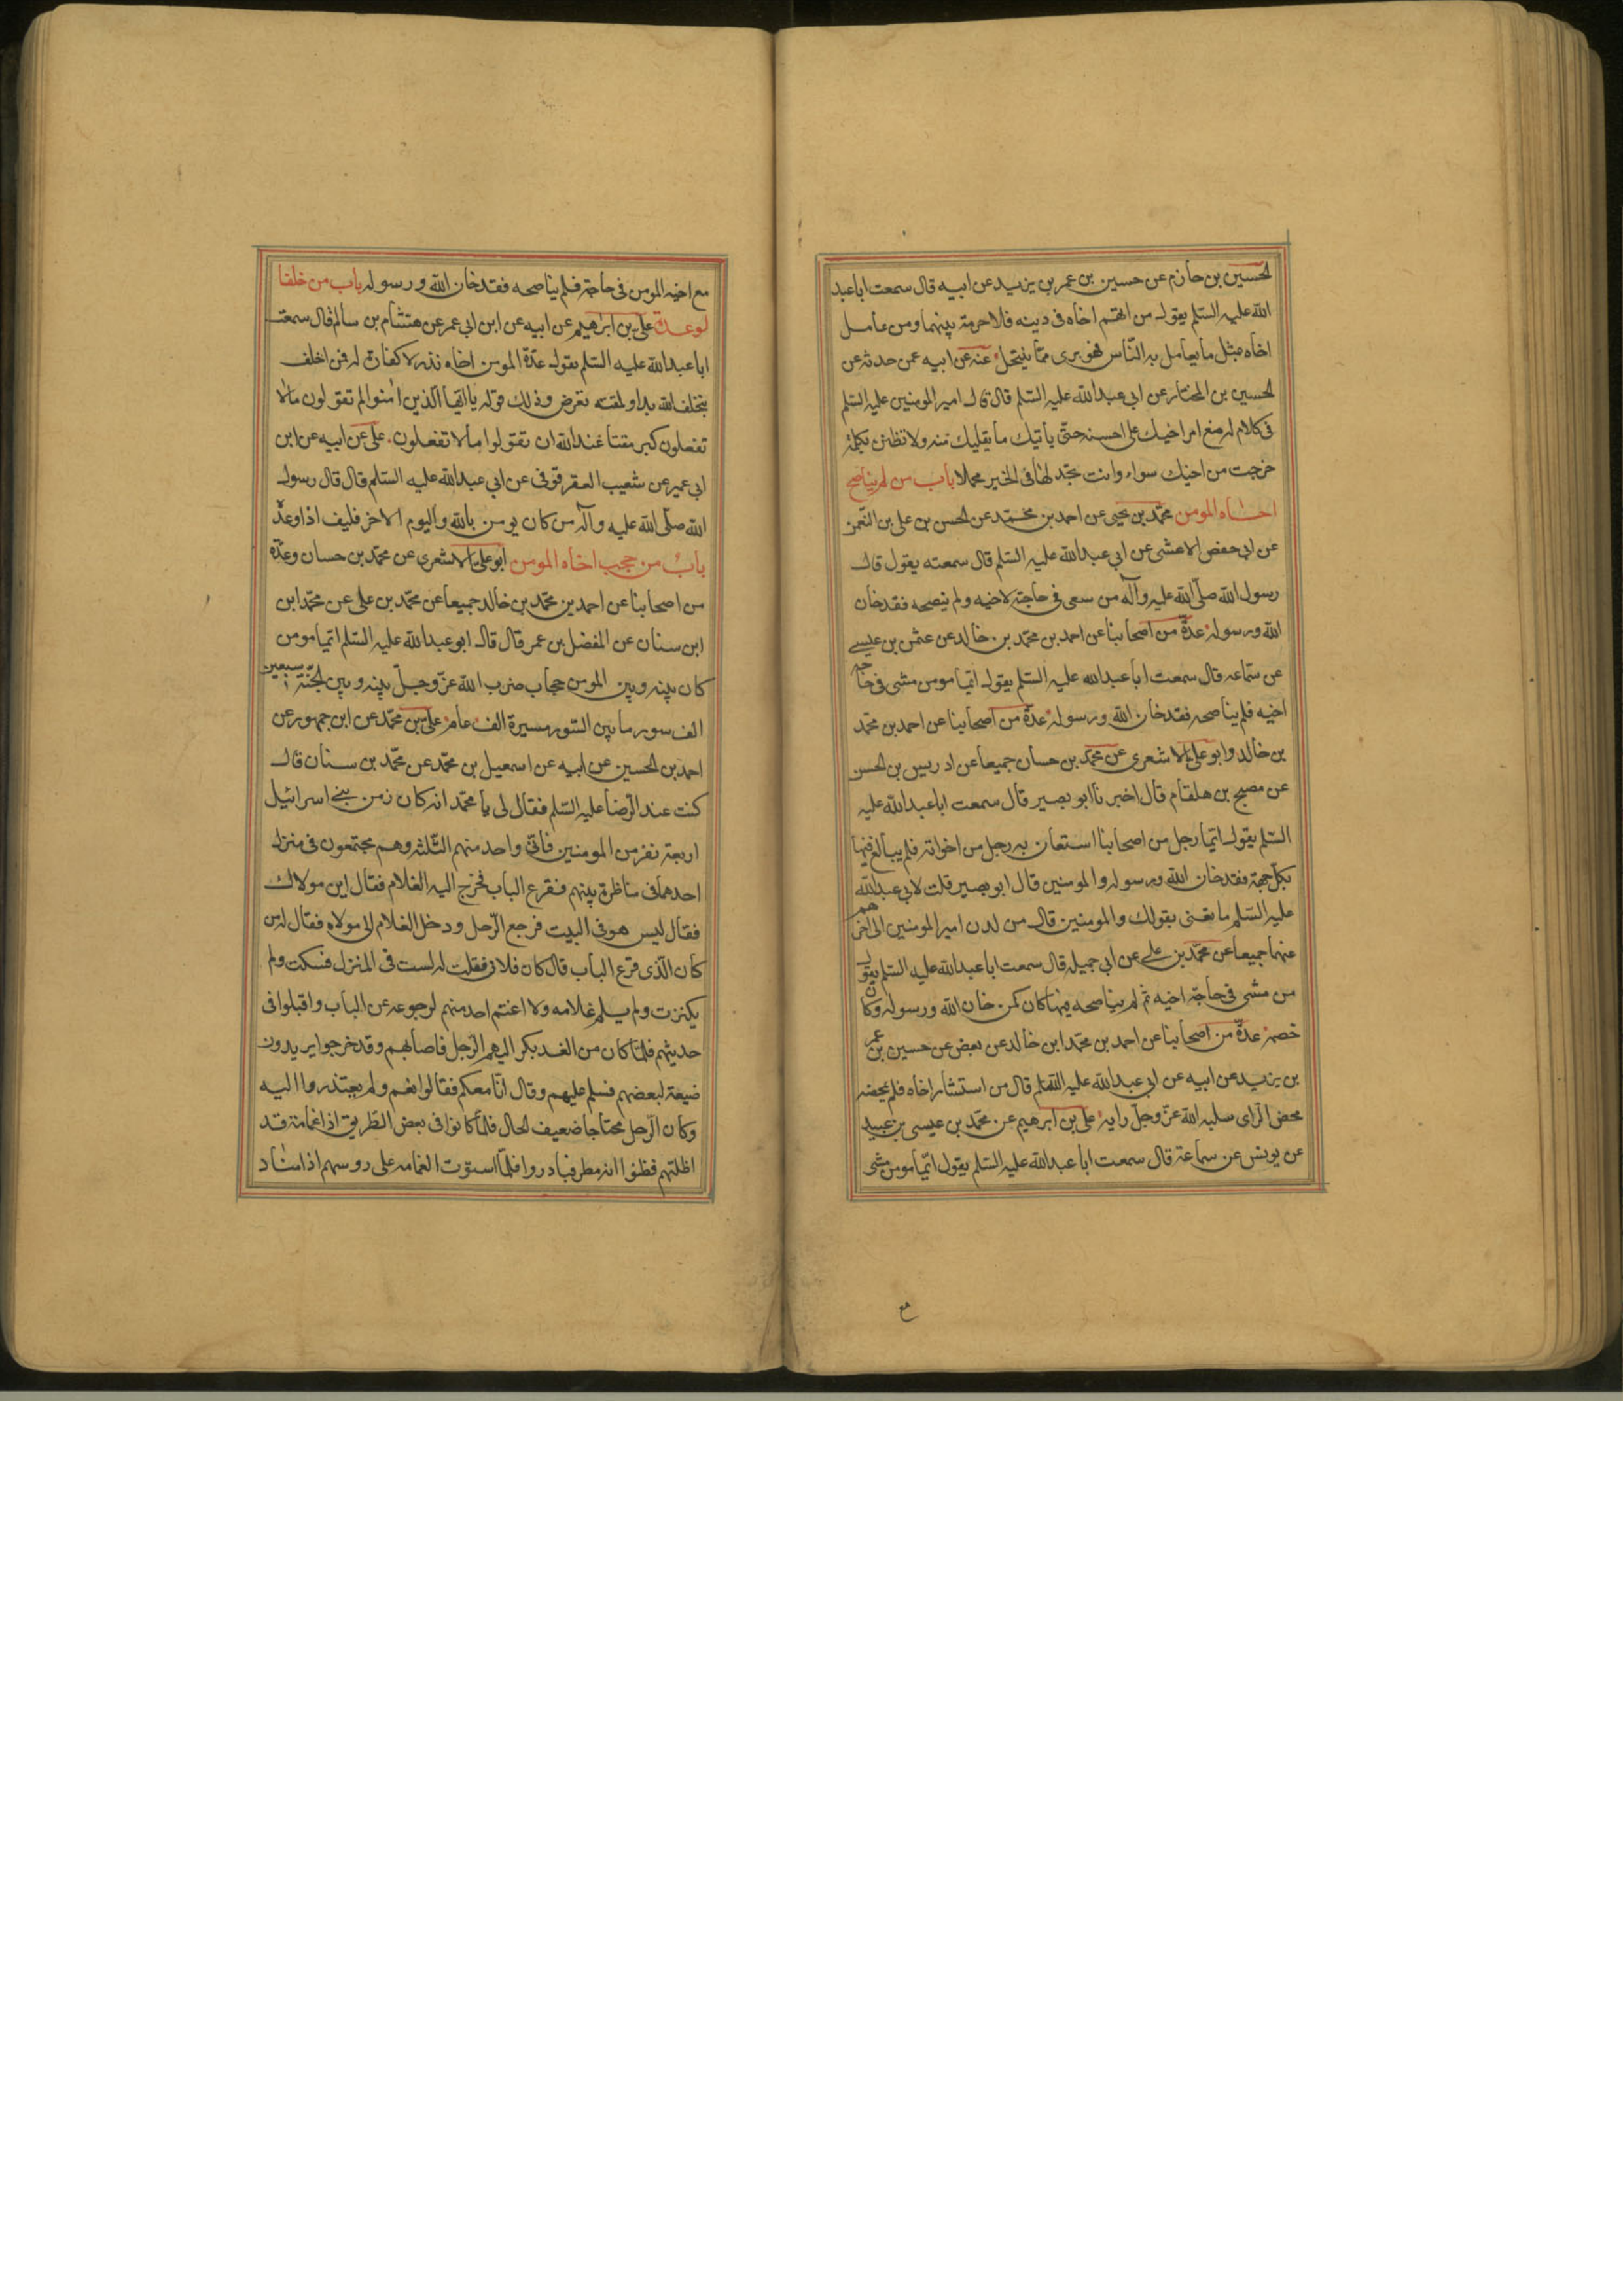 الحسين بن حازم عن حسين بن عمر بن يزيد عن ابيه قال سمعت ابا عبد
الله عليه السلم يقول من اتهم اخاه فى دينه فلا حرمة بينهما ومن عامل
اخاه بمثل ما يعامل به الناس فهو برى مما ينتحل عنه عن ابيه عمن حدثه عن
الحسين بن المختار عن ابى عبد الله عليه السلم قال قال امير المومنين عليه السلم
فى كلام له ضع امر اخيك على احسنه حتى ياتيك ما يقليك منه ولا تظنن بكلمة
خرجت من اخيك سواء وانت تجد لها فى الخير محملا باب من لم يناصح
اخاه المومن محمد بن يحيى عن احمد بن محمد عن الحسن بن على بن النعمن
عن ابى حفص الاعشى عن ابى عبد الله عليه السلم قال سمعته يقول قال
رسول الله صلى الله عليه وآله من سعى فى حاجة لاخيه ولم ينصحه فقد خان
الله ورسوله عدة من اصحابنا عن احمد بن محمد بن خالد عن عثمن بن عيسى
عن سماعه قال سمعت ابا عبد الله عليه السلم يقول ايما مومن مشى فى حاجة
اخيه فلم يناصحه فقد خان الله ورسوله عدة من اصحابنا عن احمد بن محمد
بن خالد وابو على الاشعرى عن محمد بن حسان جميعا عن ادريس بن الحسن
عن مصبح بن هلقام قال اخبرنا ابو بصير قال سمعت ابا عبد الله عليه
السلم يقول ايما رجل من اصحابنا استعان به رجل من اخوانه فلم يبالغ فيها
بكل جهة فقد خان الله ورسوله والمومنين قال ابو بصير قلت لابى عبد الله
عليه السلم ما تعنى بقولك والمومنين قال من لدن امير المومنين الى اخرهم
عنهما جميعا عن محمد بن على عن ابى جميله قال سمعت ابا عبد الله عليه السلم يقول
من مشى فى حاجة اخيه ثم لم يناصحه فيها كان كمن خان الله ورسوله وكان
خصمه عدة من اصحابنا عن احمد بن محمد ابن خالد عن بعض عن حسين بن عمر
بن يزيد عن ابيه عن ابى عبد الله عليه السلم قال من استشار اخاه فلم يمحضه
محض الراى سلبه الله عز وجل رايه على بن ابرهيم عن محمد بن عيسى بن عبيد
عن يونس عن سماعة قال سمعت ابا عبد الله عليه السلم يقول ايما مومن مشى
مع اخيه المومن فى حاجة فلم يناصحه فقد خان الله ورسوله باب من خلفا
لوعده على بن ابرهيم عن ابيه عن ابن ابى عمر عن هشام بن سالم قال سمعت
ابا عبد الله عليه السلم يقول عدة المومن اخاه نذر لا كفارة له فمن اخلف
بخلف الله بدا ولمقته تعرض وذلك قوله يا ايها الذين امنوا لم تقولون ما لا
تفعلون كبر مقتا عند الله ان تقولوا ما لا تفعلون على عن ابيه عن ابن
ابى عمير عن شعيب العقرقوفى عن ابى عبد الله عليه السلم قال قال رسول
الله صلى الله عليه وآله من كان يومن بالله واليوم الاخر فليف اذا وعد
باب من حجب اخاه المومن ابو على الاشعرى عن محمد بن حسان وعدة
من اصحابنا عن احمد بن محمد بن خالد جميعا عن محمد بن على عن محمد ابن
ابن سنان عن المفضل بن عمر قال قال ابو عبد الله عليه السلم ايما مومن
كان بينه وبين المومن حجاب ضرب الله عز وجل بينه وبين الجنة سبعين
الف سور ما بين السور مسيرة الف عام على بن محمد عن ابن جمهور عن
احمد بن الحسين عن ابيه عن اسمعيل بن محمد عن محمد بن سنان قال
كنت عند الرضا عليه السلم فقال لى يا محمد انه كان زمن بنى اسرائيل
اربعة نفر من المومنين فاتى واحد منهم الثلثه وهم مجتمعون فى منزل
احدهم فى مناظرة بينهم فقرع الباب فخرج اليه الغلام فقال اين مولاك
فقال ليس هو فى البيت فرجع الرجل ودخل الغلام الى مولاه فقال له من
كان الذى قرع الباب قال كان فلان فقلت له لست فى المنزل فسكت ولم
يكترث ولم يلم غلامه ولا اغتم احد منهم لرجوعه عن الباب واقبلوا فى
حديثهم فلما كان من الغد بكر اليهم الرجل فاصابهم وقد خرجوا يريدون
ضيعة لبعضهم فسلم عليهم وقال انا معكم فقالوا نعم ولم يعتذروا اليه
وكان الرجل محتاجا ضعيف الحال فلما كانوا فى بعض الطريق اذا غمامة قد
اظلتهم فظنوا انه مطر فبادروا فلما استوت الغمامه على روسهم اذا مناد
مع